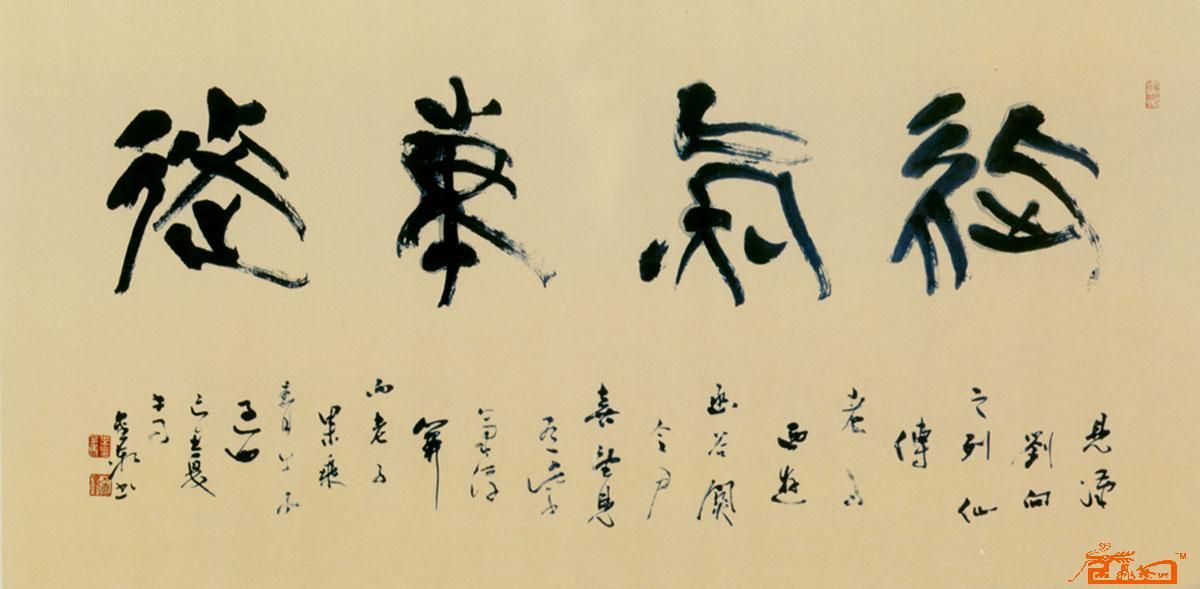 紫氣東來
見漢
劉向
之列仙
傳
老子
西遊
函谷關
令尹
喜望見
有紫
氣浮
關
而老子
果乘
青牛而
過也
己丑夏
书